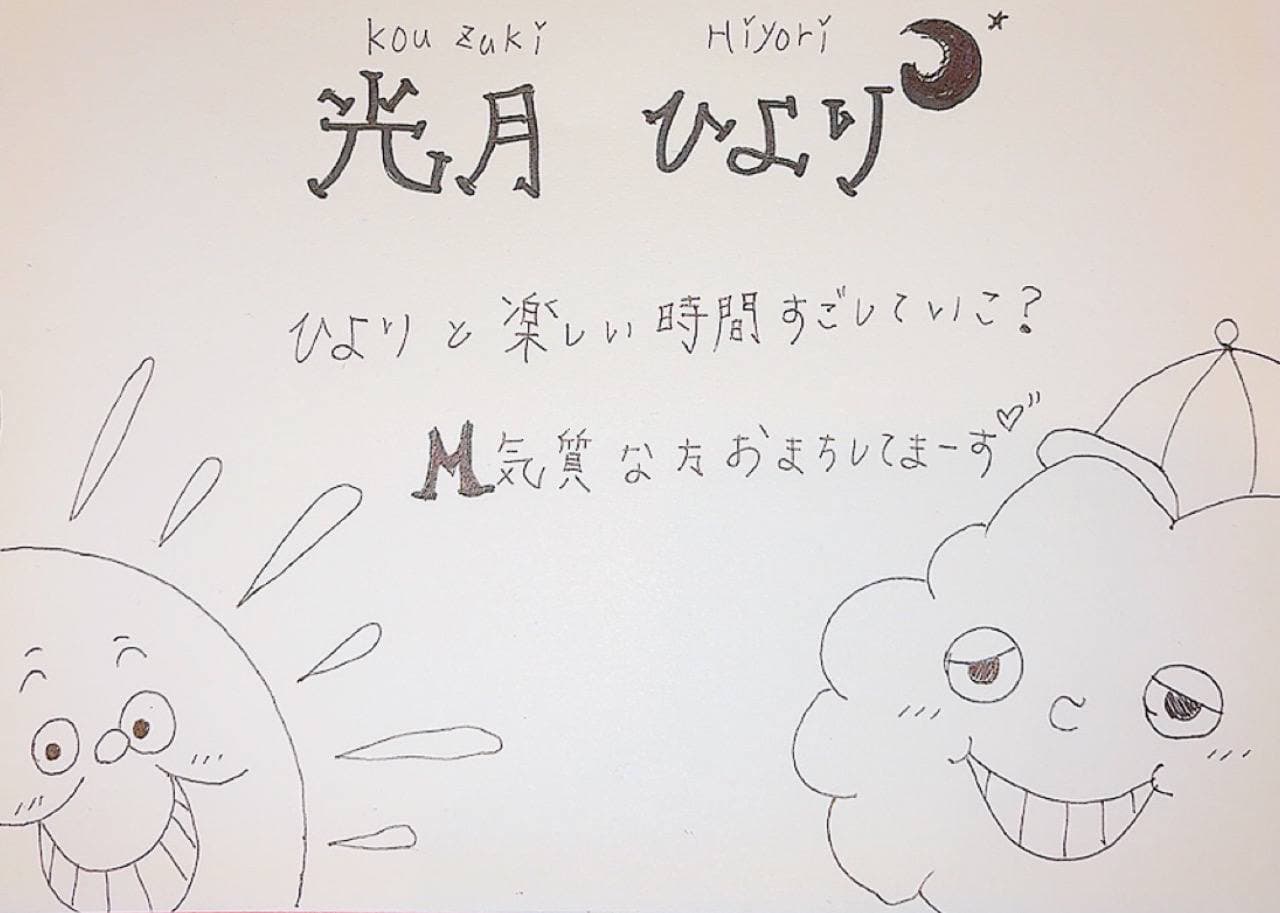 kouzuki Hiyori
光月 ひより
ひよりと楽しい時間すごしていこ?
M気質な方おまちしてまーす♡